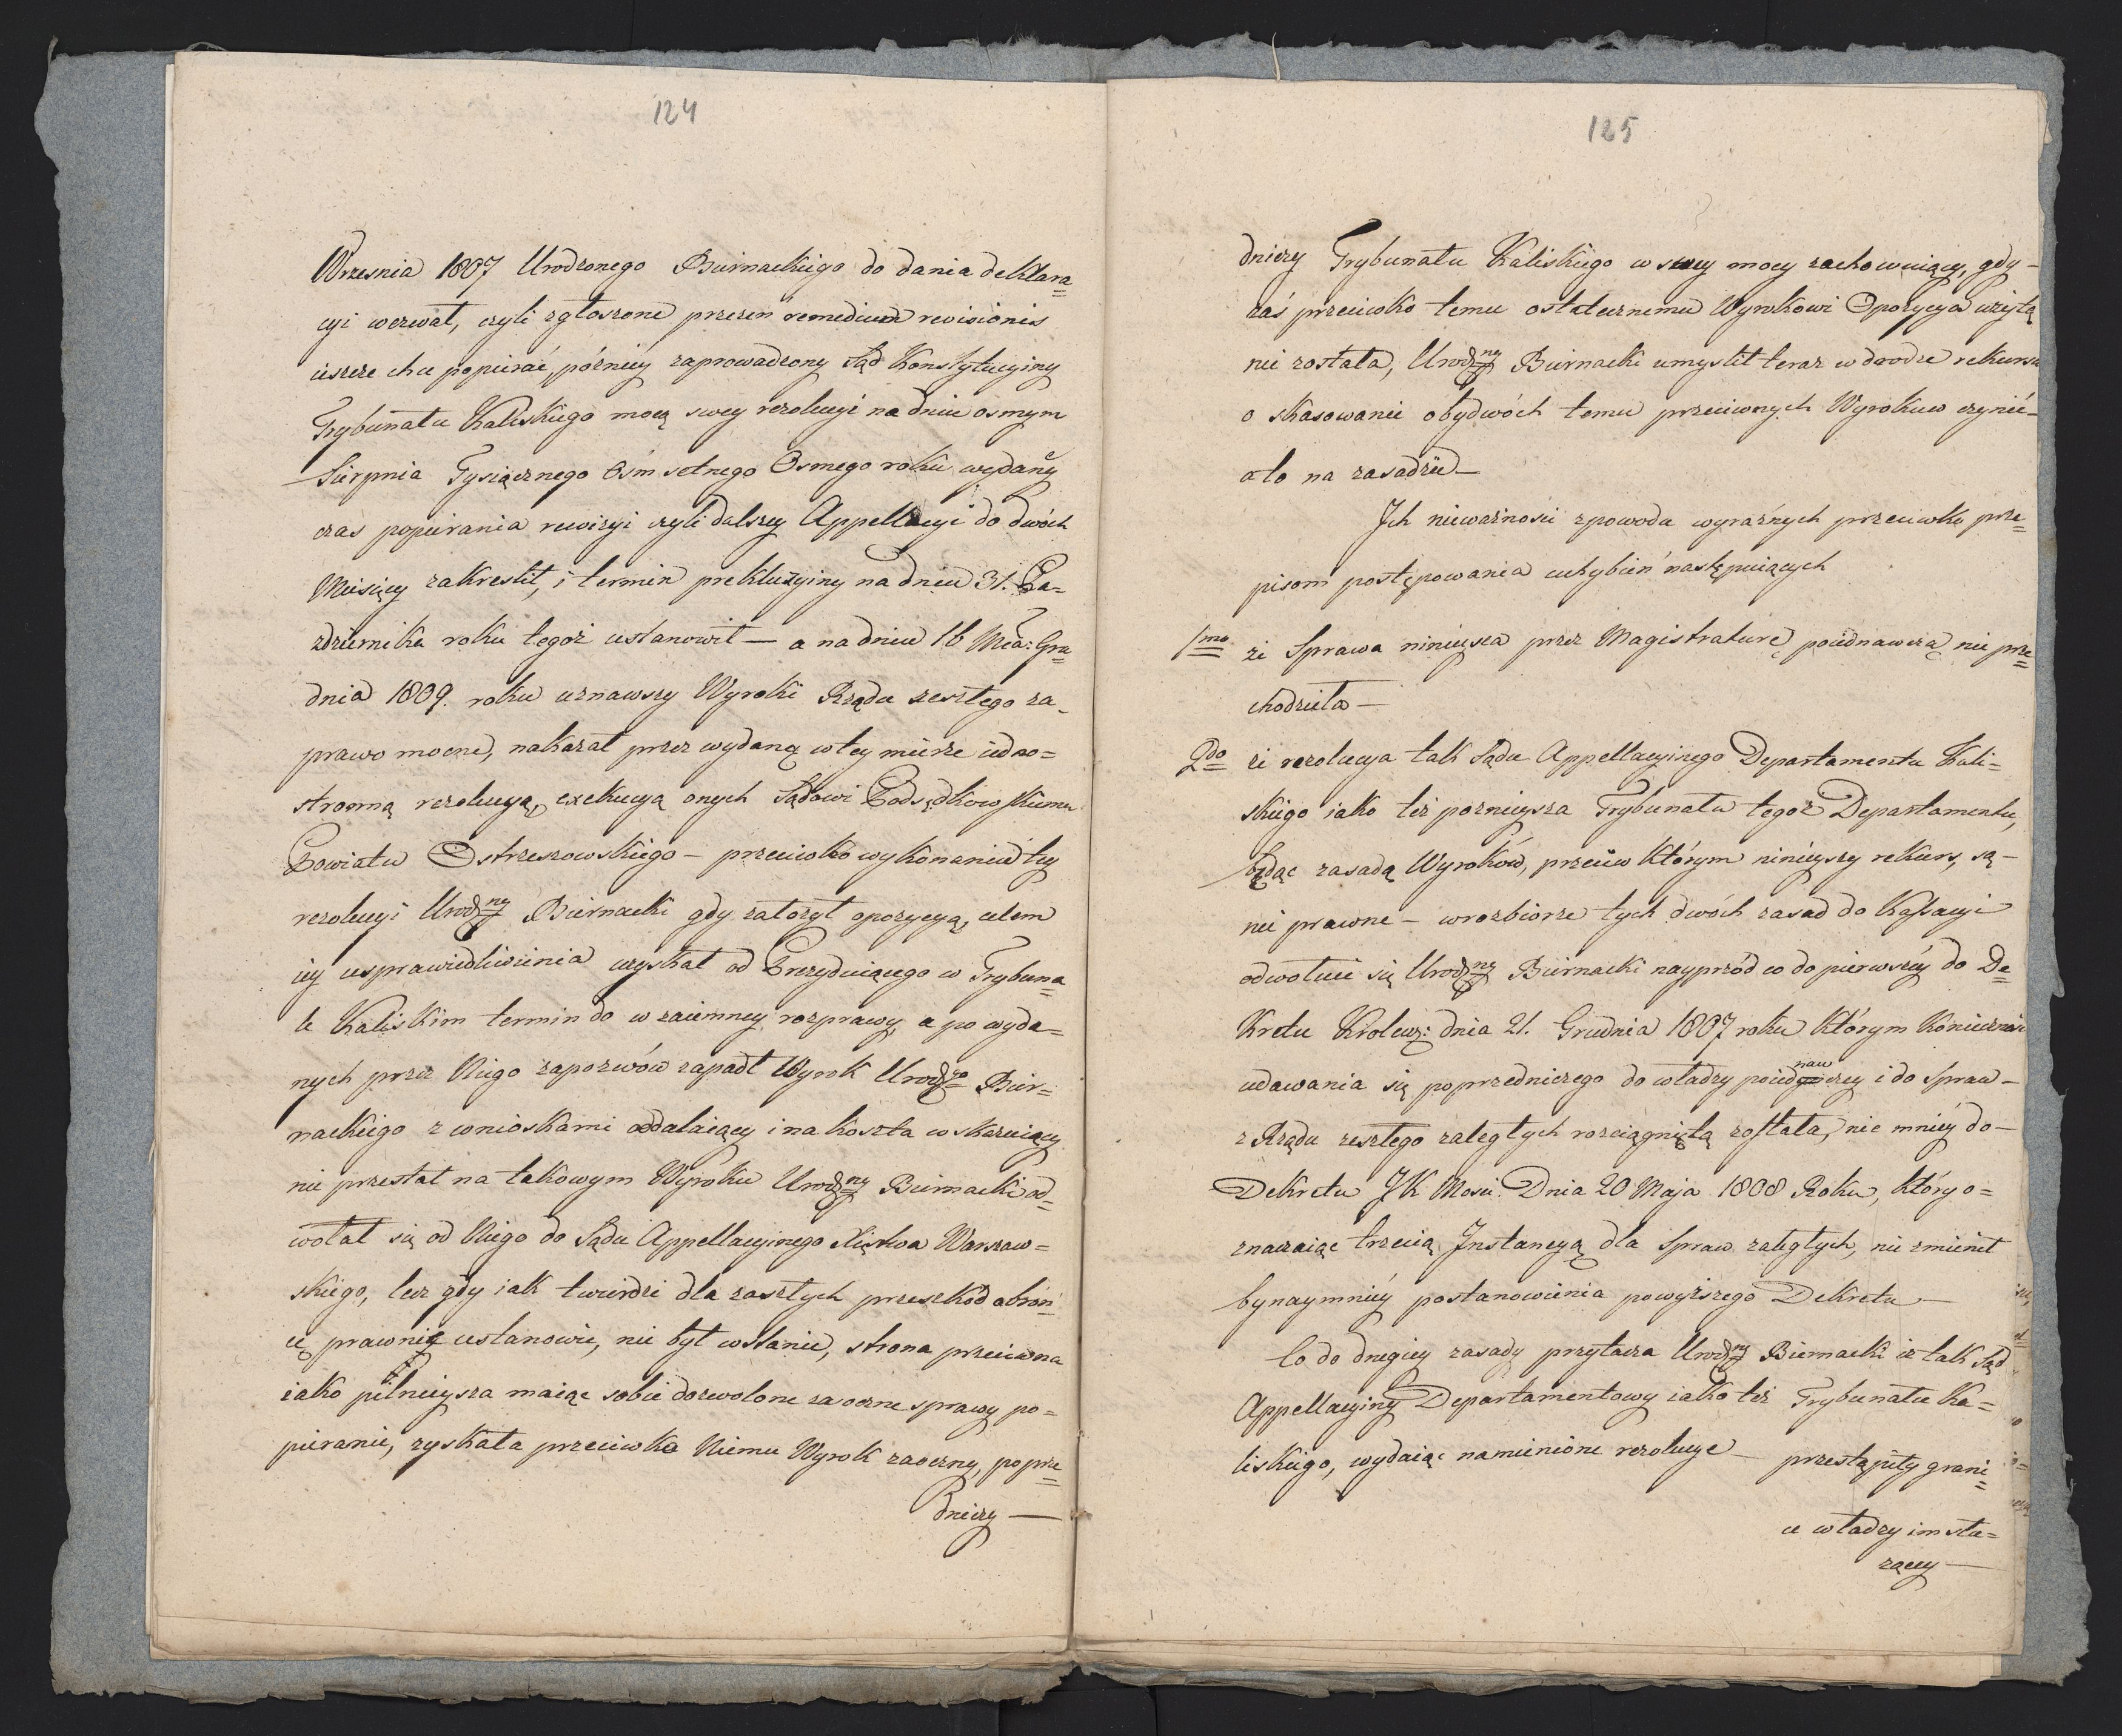 124
Wrzesnia 1807 Urodzonego Biernackiego do dania deklara=
cyi wezwał, czyli zgłoszone przezeń remedium revisionis
ieszcze chce popierać, pózniey zaprowadzony Sąd Konstytucyiny
Trybunału Kaliskiego mocą swey rezolucyi na dniu osmym
Sierpnia Tysiącznego Osm setnego Osmego roku wydaney
czas popierania rewizyi czyli dalszey Appellacyi do dwóch
Miesięcy zakreslił, i termin prekluzyiny na dniu 31. Pa=
zdziernika roku tegoż ustanowił — a na dniu 16 Mca: Gru=
dnia 1809. roku uznawszy Wyroki Rządu zeszłego za
prawo mocne, nakazał przez wydaną w tey mierze iedno=
stronną rezolucyą, exekucyą onych Sądowi Podsędkowskiemu
Powiatu Ostrzeszowskiego — przeciwko wykonaniu tey
rezolucyi Urodzny Biernacki gdy założył opozycyą, celem
iey usprawiedliwienia uzyskał od Prezyduiącego w Trybuna=
le Kaliskim termin do wzaiemney rozprawy, a po wyda=
nych przez Niego zapozwów zapadł Wyrok Urodzgo Bier=
nackiego z wnioskami oddalaiący i na koszta wskazuiący
nie przestał na takowym Wyroku Urodzny Biernacki od=
wołał się od Niego do Sądu Appellacyinego Xięstwa Warszaw=
skiego, lecz gdy iak twierdzi dla zaszłych przeszkód obroń=
cę prawnie ustanowić, nie był wstanie, strona przeciwna
iako pilnieysza maiąc sobie dozwolone zaoczne sprawy po=
pieranie, zyskała przeciwko Niemu Wyrok zaoczny, poprze=
dniczy —
125
dniczy Trybunału Kaliskiego w swey mocy zachowuiący, gdy —
zaś przeciwko temu ostatecznemu Wyrokowi Opozycya użytą
nie została, Urodzny Biernacki umyslił teraz w drodze rekursu
o skasowanie obydwóch temu przeciwnych Wyroków czynić —
a to na zasadzie —
Ich nieważnosci z powodu wyraźnych przeciwko prze=
pisom postępowania uchybień następuiących
1mo że Sprawa ninieysza przez Magistraturę poiednawczą nie prze=
chodziła —
2do że rezolucya tak Sądu Appellacyinego Departamentu Kali=
skiego iako też poznieysza Trybunału tegoż Departamentu,
będąc zasadą Wyroków, przeciw którym ninieyszy rekurs, są —
nie prawne — w rozbiorze tych dwóch zasad do Kassacyi
odwołuie się Urodzny Biernacki nayprzód co do pierwszey do De=
kretu Królewz: dnia 21. Grudnia 1807 roku którym Konieczność
udawania się poprzedniczego do władzy poiednawczey i do Spraw —
z Rządu zeszłego zaległych rozciągniętą została, nie mniey do —
Dekretu JK Mosci Dnia 20 Maja 1808 Roku, który o=
znaczaiąc trzecią Instancyą dla Spraw zaległych, nie zmienił
bynaymniey postanowienia powyższego Dekretu —
Co do drugiey zasady przytacza Urodzny Biernacki iż tak Sąd
Appellacyiny Departamentowy iako też Trybunału Ka=
liskiego, wydaiąc namienione rezolucye — przestąpiły grani=
ce władzy im słu=
żącey —